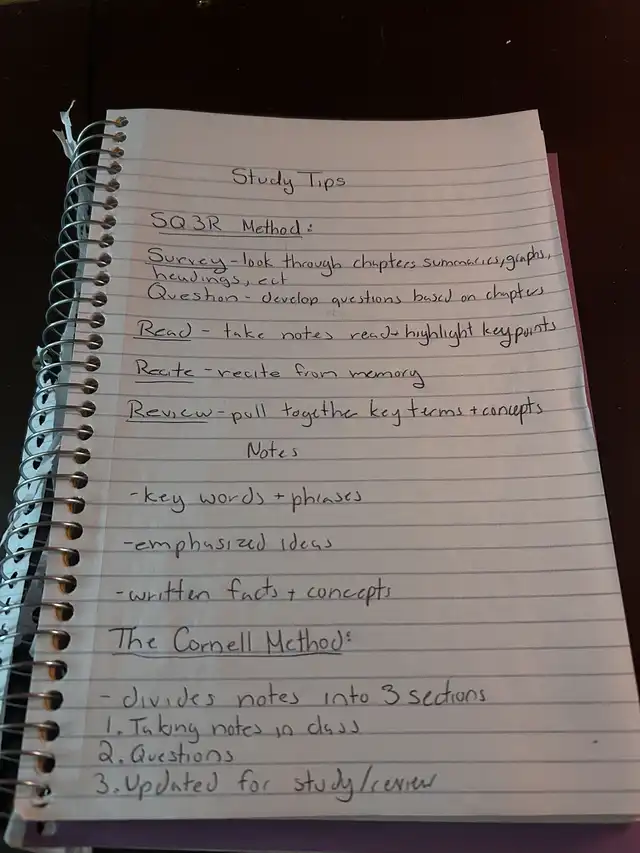 Study Tips
SQ3R Method:
Survey - look through chapters summaries, graphs,
headings, ect
Question - develop questions based on chapters
Read - take notes read + highlight key points
Recite - recite from memory
Review - pull together key terms + concepts
Notes
- key words + phrases
- emphasized ideas
- written facts + concepts
The Cornell Method:
- divides notes into 3 sections
1. Taking notes in class
2. Questions
3. Updated for study/review